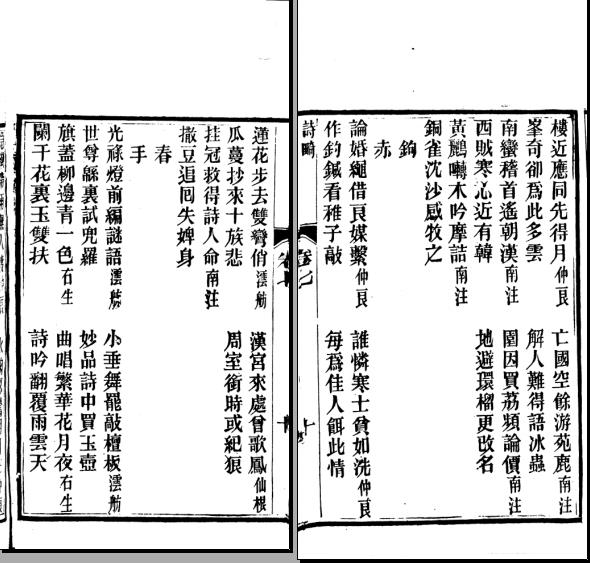 樓近應同先得月仲良　亡國空餘游苑鹿南注
峯奇卻爲此多雲　解人難得語冰蟲
南蠻稽首遙朝漢南注　圍因買荔頻論價南注
西賊寒心近有韓　地避環榴更改名
黃鸝囀木吟摩詰南注
銅雀沈沙感牧之
鉤
赤
論婚繩借良媒繫仲良　誰憐寒士貧如洗仲良
作釣鍼看稚子敲　每爲佳人餌此情
詩畸　卷七　十
蓮花步去雙彎俏雲舫　漢宮來處曾歌鳳仙根
瓜蔓抄來十族悲　周室銜時或紀狼
挂冠救得詩人命南注
撒豆追回失婢身
春
手
光祿燈前編謎語雲舫　小垂舞罷敲檀板雲舫
世尊繇裏試兜羅　妙品詩中買玉壺
旗蓋柳邊青一色石生　曲唱繁華花月夜石生
闌干花裏玉雙扶　詩吟翻覆雨雲天